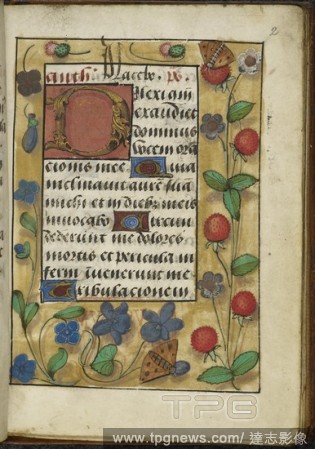 2
anth. Placebo. ps
Dilexi qm̄
exaudiet
dominus
vocem ora
cionis mee. Quia
inclinavit aurē suā
michi et in dieb⁹ meis
invocabo Circūn
dederunt me dolores
mortis et pericula in
ferni īvenerunt me
Tribulacionem
TPG
www.tpgnews.com/達志影像